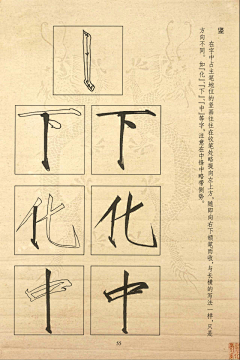 竖
在字中占主笔地位的竖画往往在收笔处略提向左上方，随即向右下顿笔而收，与长横的写法一样，只是
方向不同。如“化”“下”“中”等字。注意在中锋中略带侧势。
下
下
化
化
中
中